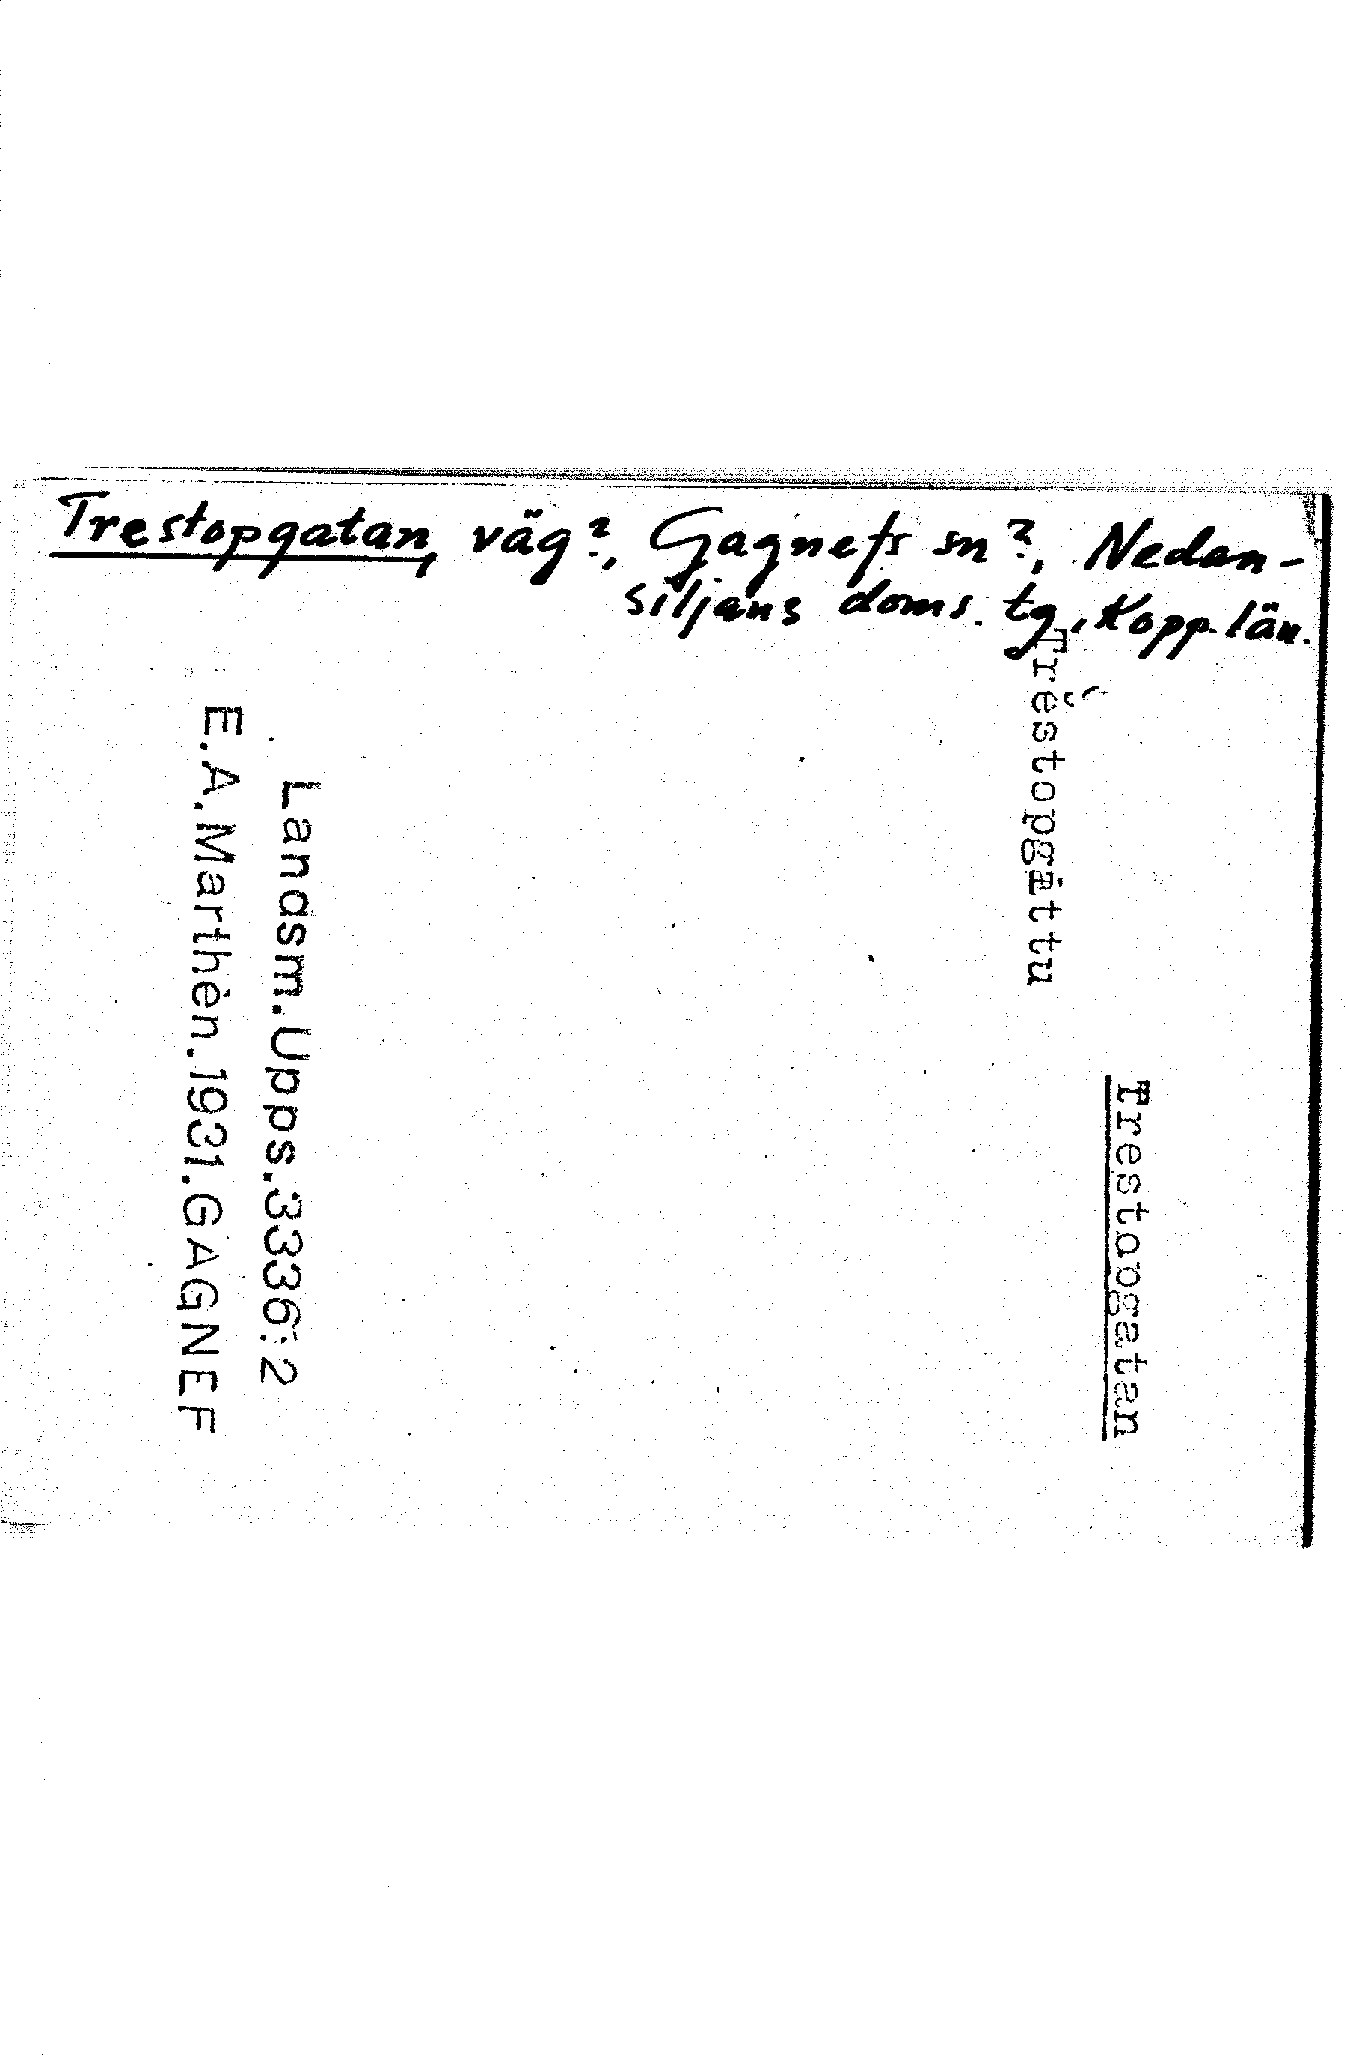 Trestopgatan, väg?, Gagnefs sn?, Nedan-
siljans doms. tg, Kopp. län.
Trestopgatan
Tréstopgàttu
Landsm. Upps. 3336:2
E.A. Marthèn. 1931. GAGNEF